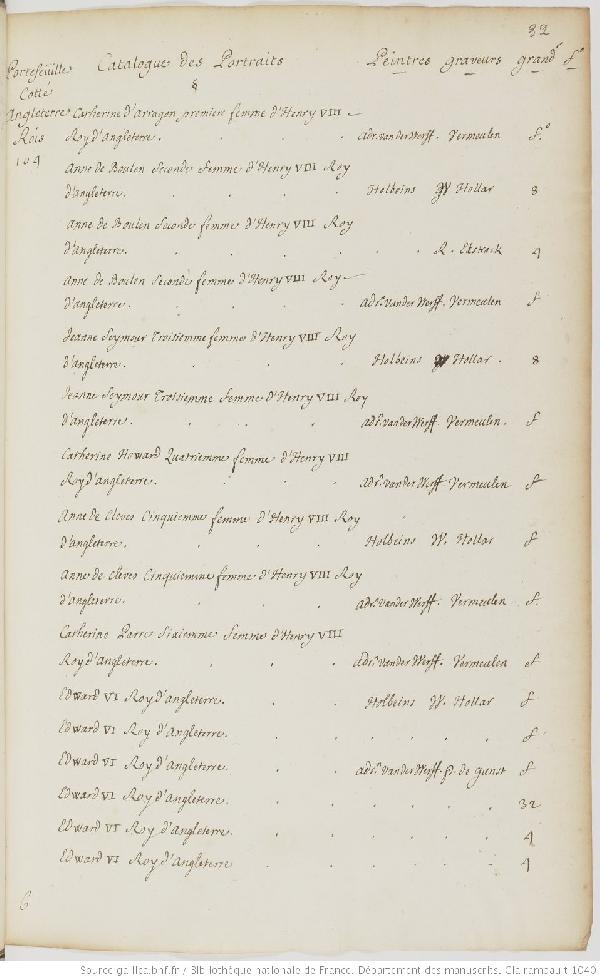 32
Portefeuille Catalogue des Portraits Peintres graveurs grandr fo
Cotté
Angleterre Catherine d'Arragon premiere femme d'Henry VIII
Rois Roy d'Angleterre. Adr. vander Werff. Vermeulen fo
104 Anne de Boulen Seconde femme d'Henry VIII Roy
d'angleterre. Holbeins W Hollar 8
Anne de Boulen Seconde femme d'Henry VIII Roy
d'angleterre. R. Elstrack 4
Anne de Boulen Seconde femme d'Henry VIII Roy
d'angleterre. Adr. vander Werff. Vermeulen f
Jeanne Seymour Troisiemme femme d'Henry VIII Roy
d'angleterre. Holbeins W Hollar. 8
Jeanne Seymour Troisiemme femme d'Henry VIII Roy
d'angleterre. Adr. vander Werff. Vermeulen. f
Catherine Howard Quatriemme femme d'Henry VIII
Roy d'angleterre. Adr. vander Werff Vermeulen f
Anne de Cleves Cinquiemme femme d'Henry VIII Roy
d'angleterre. Holbeins W. Hollar f
Anne de Cleves Cinquiemme femme d'Henry VIII Roy
d'angleterre. Adr. vander Werff. Vermeulen f.
Catherine Parre Sixiemme femme d'Henry VIII
Roy d'angleterre. Adr. vander Werff. Vermeulen f
Edward VI Roy d'angleterre. Holbeins W. Hollar f
Edward VI Roy d'Angleterre. f
Edward VI Roy d'Angleterre. Adr. vander Werff P. de Gunst f
Edward VI Roy d'Angleterre. 32
Edward VI Roy d'Angleterre. 4
Edward VI Roy d'Angleterre 4
6
Source gallica.bnf.fr / Bibliothèque nationale de France. Département des manuscrits. Clairambault 1040